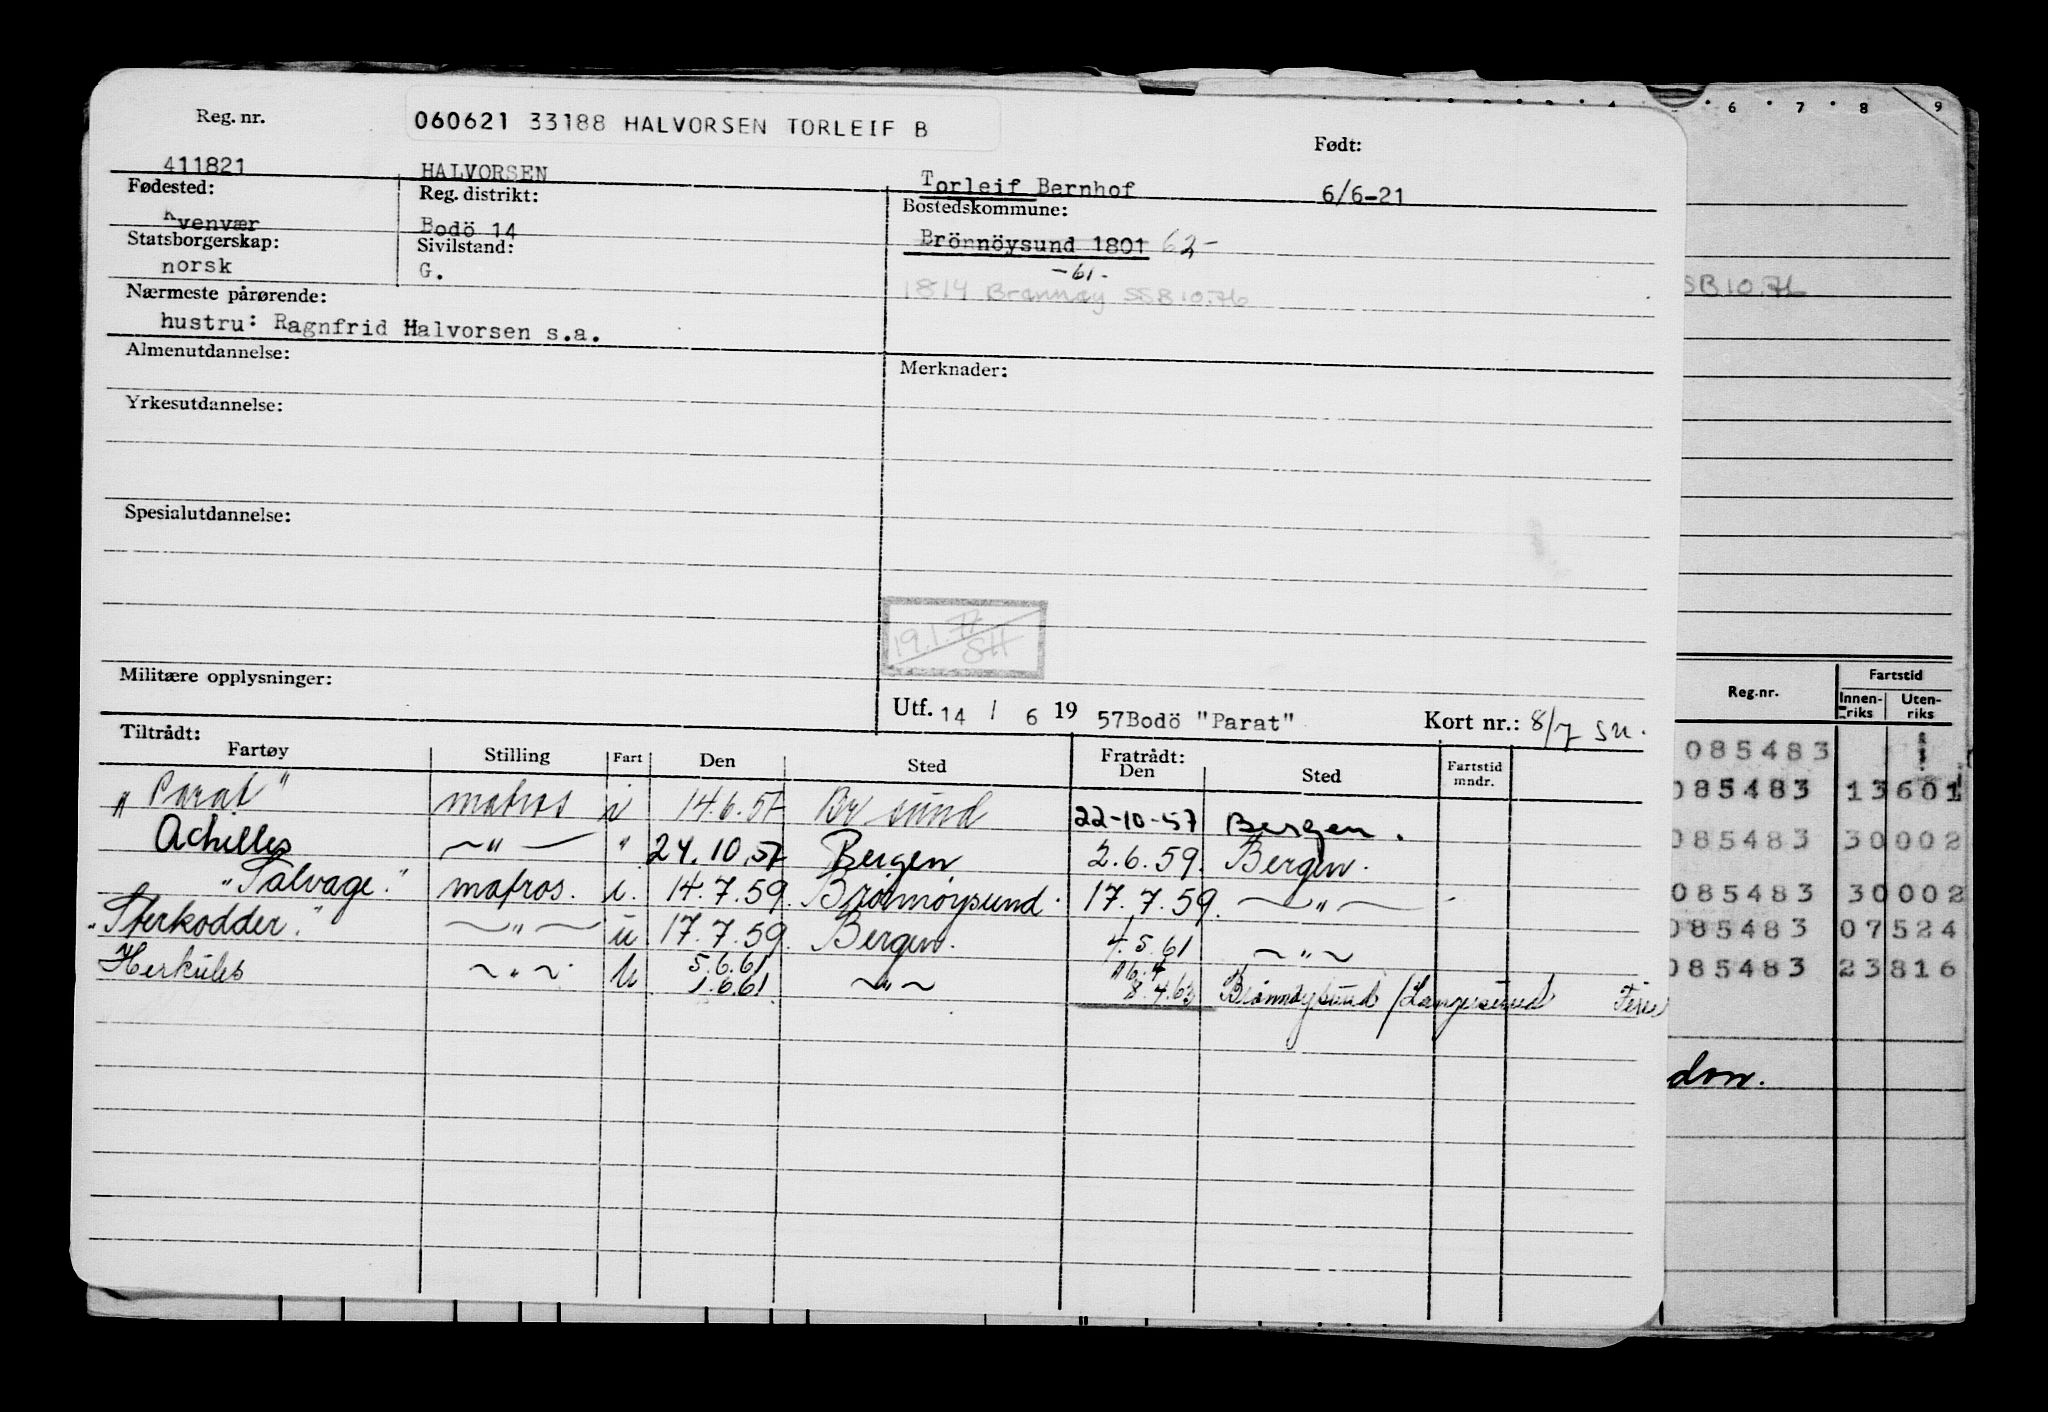 6 7 8 9
Reg. nr. 060621 33188 HALVORSEN TORLEIF B Født:
411821 HALVORSEN Torleif Bernhof 6/6-21
Fødested: Reg. distrikt: Bostedskommune:
Kvenvær Bodö 14 Brönnöysund 1801 62-
Statsborgerskap: Sivilstand:
norsk G. -61-
Nærmeste pårørende: 1814 Brønnøy SSB 10.76 SB 10.76
hustru: Ragnfrid Halvorsen s.a.
Almenutdannelse: Merknader:
Yrkesutdannelse:
Spesialutdannelse:
19.1.77
SH
Militære opplysninger:
Utf. 14 / 6 19 57 Bodö "Parat" Kort nr.: 8/7 su.
Reg.nr. Fartstid
Innen-riks Uten-riks
Tiltrådt: Fratrådt:
Fartøy Stilling Fart Den Sted Den Sted Fartstid mndr.
"Parat" matros i 14.6.57 Br sund 22-10-57 Bergen.
Achilles ~"— " 24.10.57 Bergen 2.6.59. Bergen.
"Salvage." matros. i. 14.7.59. Brönnöysund. 17.7.59. ~"~
"Sterkodder." ~"~ u 17.7.59. Bergen. 4.5.61 ~"~
Herkules ~"~ u 5.6.61 1.6.61 ~"~ 16.4 8.4.63 Brönnöysund / Langesund Ferie
085483
085483 13 601
085483 30 002
085483 30 002
085483 07 524
085483 23 816
don.